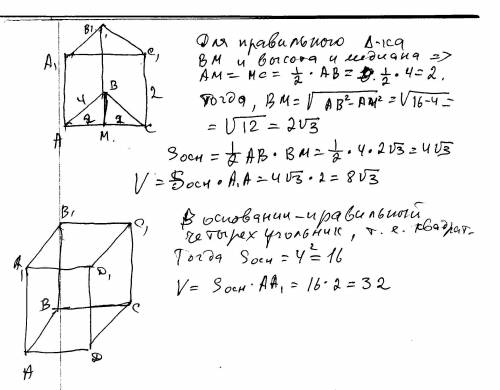 Для правильного Δ-ка
BM и высота и медиана =>
AM = MC = 1/2 · AB = 1/2 · 4 = 2.
Тогда, BM = √(AB² - AM²) = √(16-4) =
= √12 = 2√3
Sосн = 1/2 AB · BM = 1/2 · 4 · 2√3 = 4√3
V = Sосн · A₁A = 4√3 · 2 = 8√3
B₁
A₁
C₁
B
4
2
2
2
A
M
C
В основании - правильный
четырех угольник, т. е. квадрат.
Тогда Sосн = 4² = 16
V = Sосн · AA₁ = 16 · 2 = 32
B₁
C₁
A₁
D₁
B
C
A
D